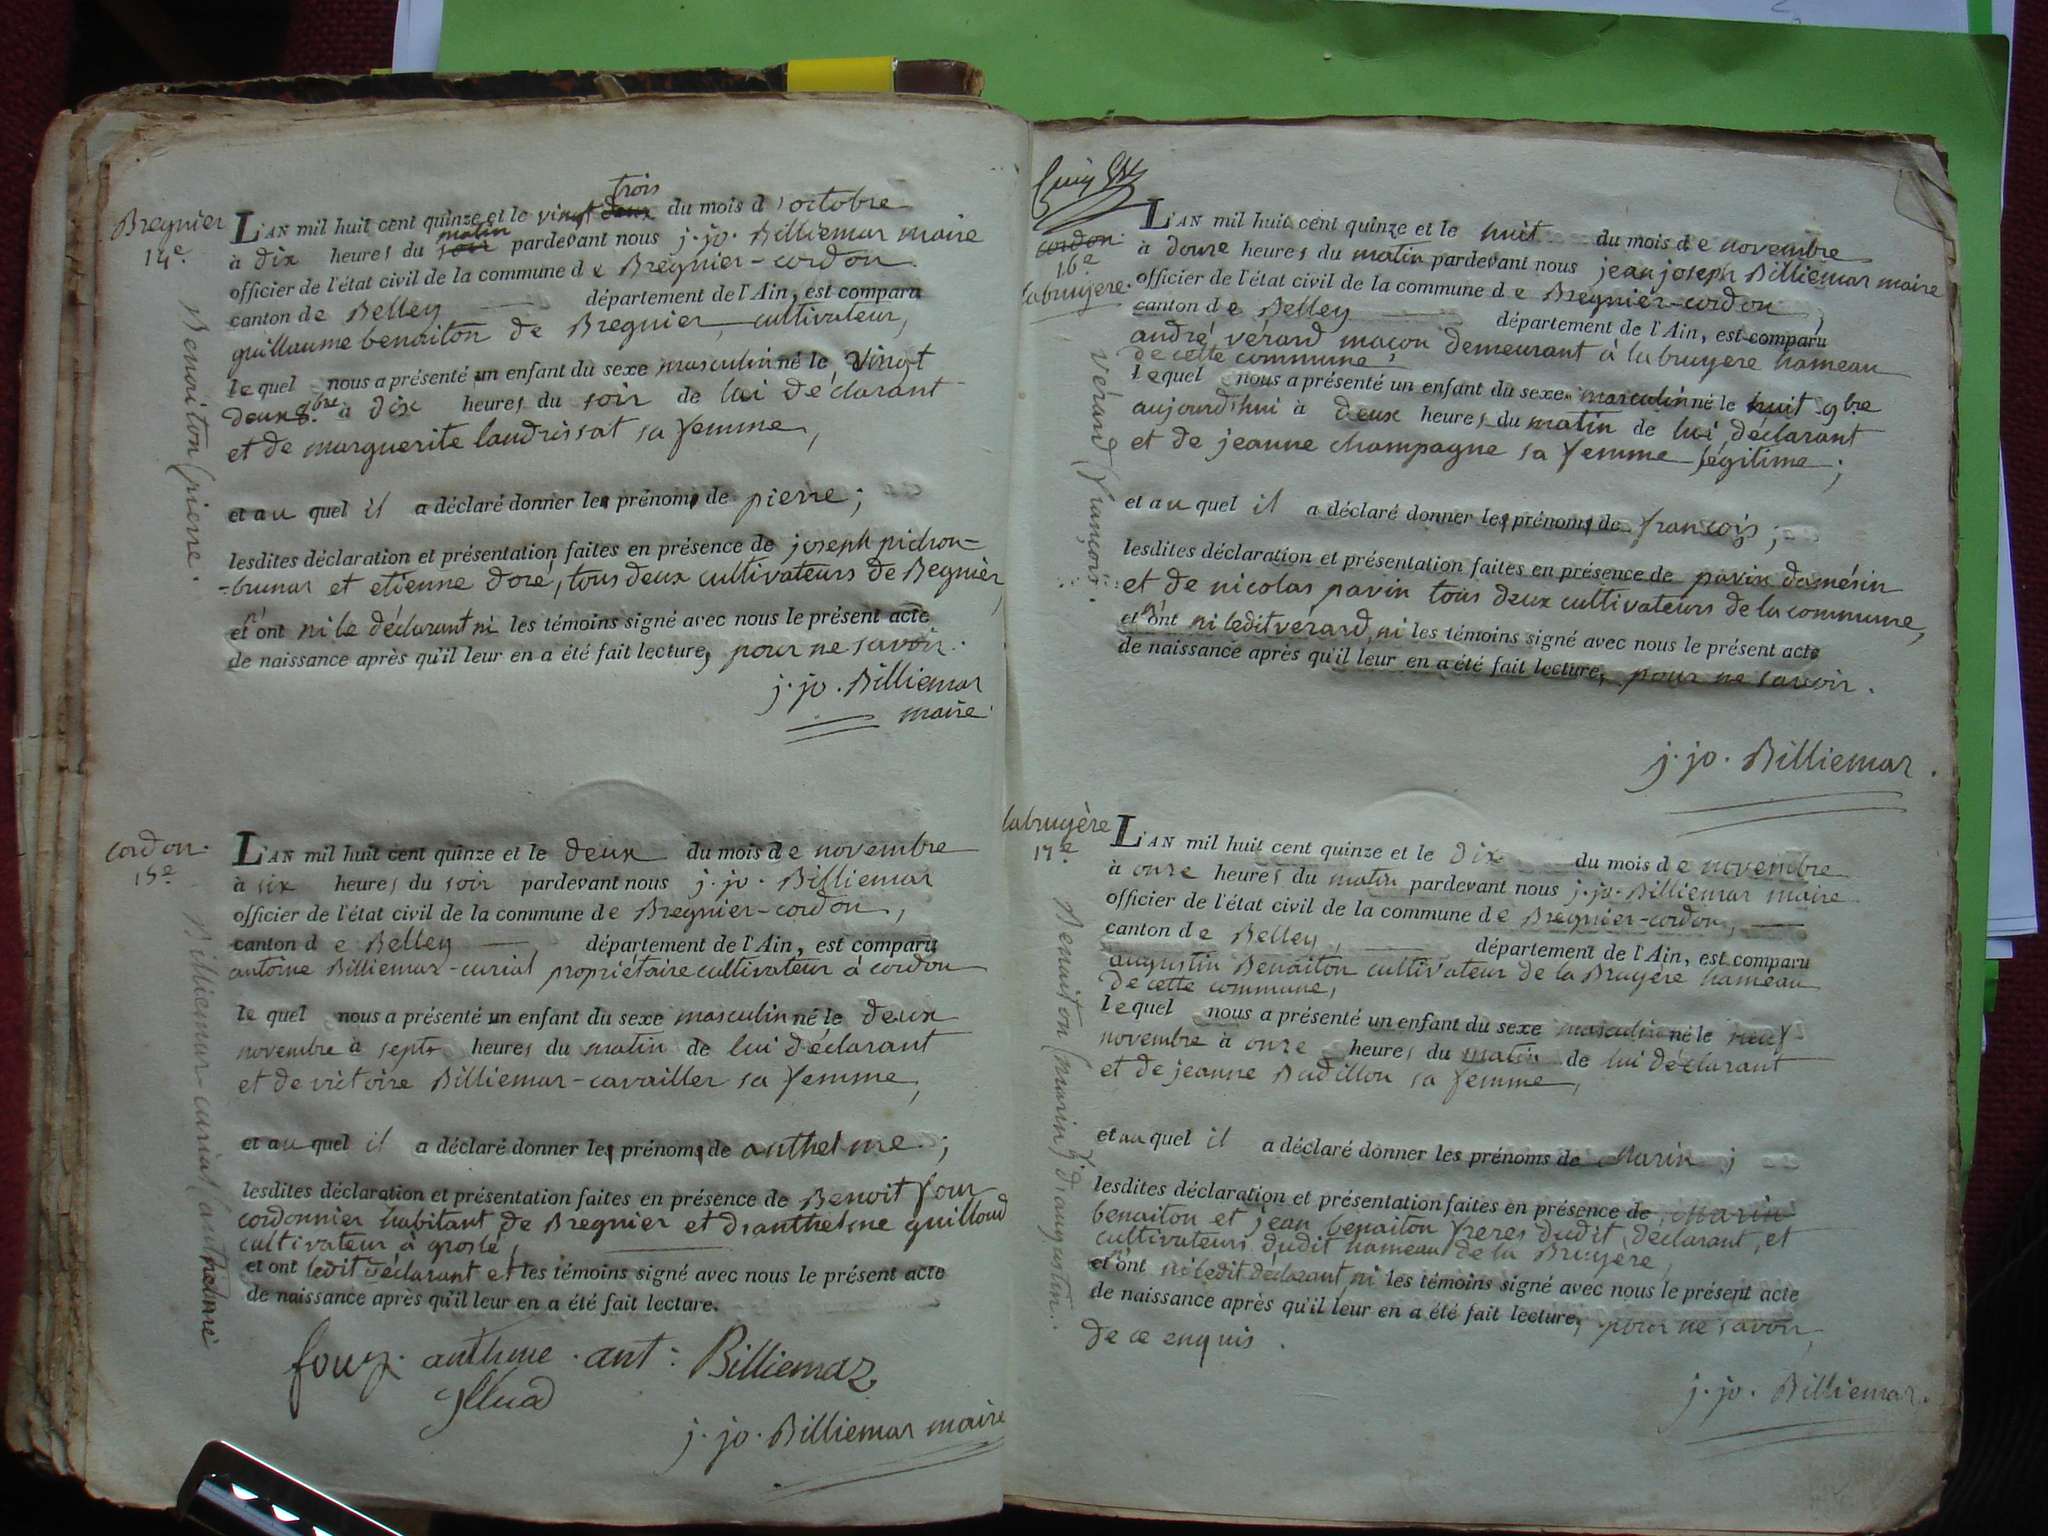 Bregnier
14e.
Benaiton (pierre.
trois
L'AN mil huit cent quinze et le vingt deux du mois d'octobre
matin
à dix heures du soir pardevant nous j. jo. Billiemar maire
officier de l'état civil de la commune de Bregnier-cordon
canton de Belley département de l'Ain, est comparu
guillaume benaiton de Bregnier, cultivateur,
lequel nous a présenté un enfant du sexe masculin né le vingt
deux 8.bre à dix heures du soir de lui déclarant
et de marguerite laudrissat sa femme,
et au quel il a déclaré donner les prénoms de pierre;
lesdites déclaration et présentation faites en présence de joseph pichon-
-brunar et etienne doré, tous deux cultivateurs de Begnier,
et n'ont ni le déclarant ni les témoins signé avec nous le présent acte
de naissance après qu'il leur en a été fait lecture, pour ne savoir.
j. jo. Billiemar
maire
cordon.
15e
Billiemar-curial (anthelme
L'AN mil huit cent quinze et le deux du mois de novembre
à six heures du soir pardevant nous j. jo. Billiemar
officier de l'état civil de la commune de Bregnier-cordon,
canton de Belley département de l'Ain, est comparu
antoine Billiemar-curial propriétaire cultivateur à cordon
lequel nous a présenté un enfant du sexe masculin né le deux
novembre à sept heures du matin de lui déclarant
et de victoire Billiemar-cavailler sa femme,
et au quel il a déclaré donner les prénoms de anthelme;
lesdites déclaration et présentation faites en présence de Benoit four
cordonnier habitant de Bregnier et d'anthelme guilloud
cultivateur à groslé,
et ont ledit déclarant et les témoins signé avec nous le présent acte
de naissance après qu'il leur en a été fait lecture.
four. anthme. ant: Billiemaz
j. jo. Billiemar maire
cordon.
16e
labruyere.
vérand (françois.
L'AN mil huit cent quinze et le huit du mois de novembre
à douze heures du matin pardevant nous jean joseph Billiemar maire
officier de l'état civil de la commune de Bregnier-cordon,
canton de Belley département de l'Ain, est comparu
andré vérard maçon demeurant à labruyere hameau
de cette commune,
lequel nous a présenté un enfant du sexe masculin né le huit 9bre
aujourd'hui à deux heures du matin de lui déclarant
et de jeanne champagne sa femme légitime;
et au quel il a déclaré donner les prénoms de françois;
lesdites déclaration et présentation faites en présence de pavin damésin
et de nicolas pavin tous deux cultivateurs de la commune,
et n'ont ni ledit vérard, ni les témoins signé avec nous le présent acte
de naissance après qu'il leur en a été fait lecture, pour ne savoir.
j. jo. Billiemar.
labruyére
17e.
Benaiton (marin) d'augustin.
L'AN mil huit cent quinze et le dix du mois de novembre
à onze heures du matin pardevant nous j. jo. Billiemar maire
officier de l'état civil de la commune de Bregnier-cordon,
canton de Belley, département de l'Ain, est comparu
augustin Benaiton cultivateur de la Bruyére hameau
de cette commune,
lequel nous a présenté un enfant du sexe masculin né le neuf
novembre à onze heures du matin de lui déclarant
et de jeanne Badillou sa femme,
et au quel il a déclaré donner les prénoms de Marin;
lesdites déclaration et présentation faites en présence de Marin
benaiton et jean benaiton freres dudit déclarant, et
cultivateurs dudit hameau de la Bruyére,
et n'ont ni ledit déclarant, ni les témoins signé avec nous le présent acte
de naissance après qu'il leur en a été fait lecture, pour ne savoir,
de ce enquis.
j. jo. Billiemar.